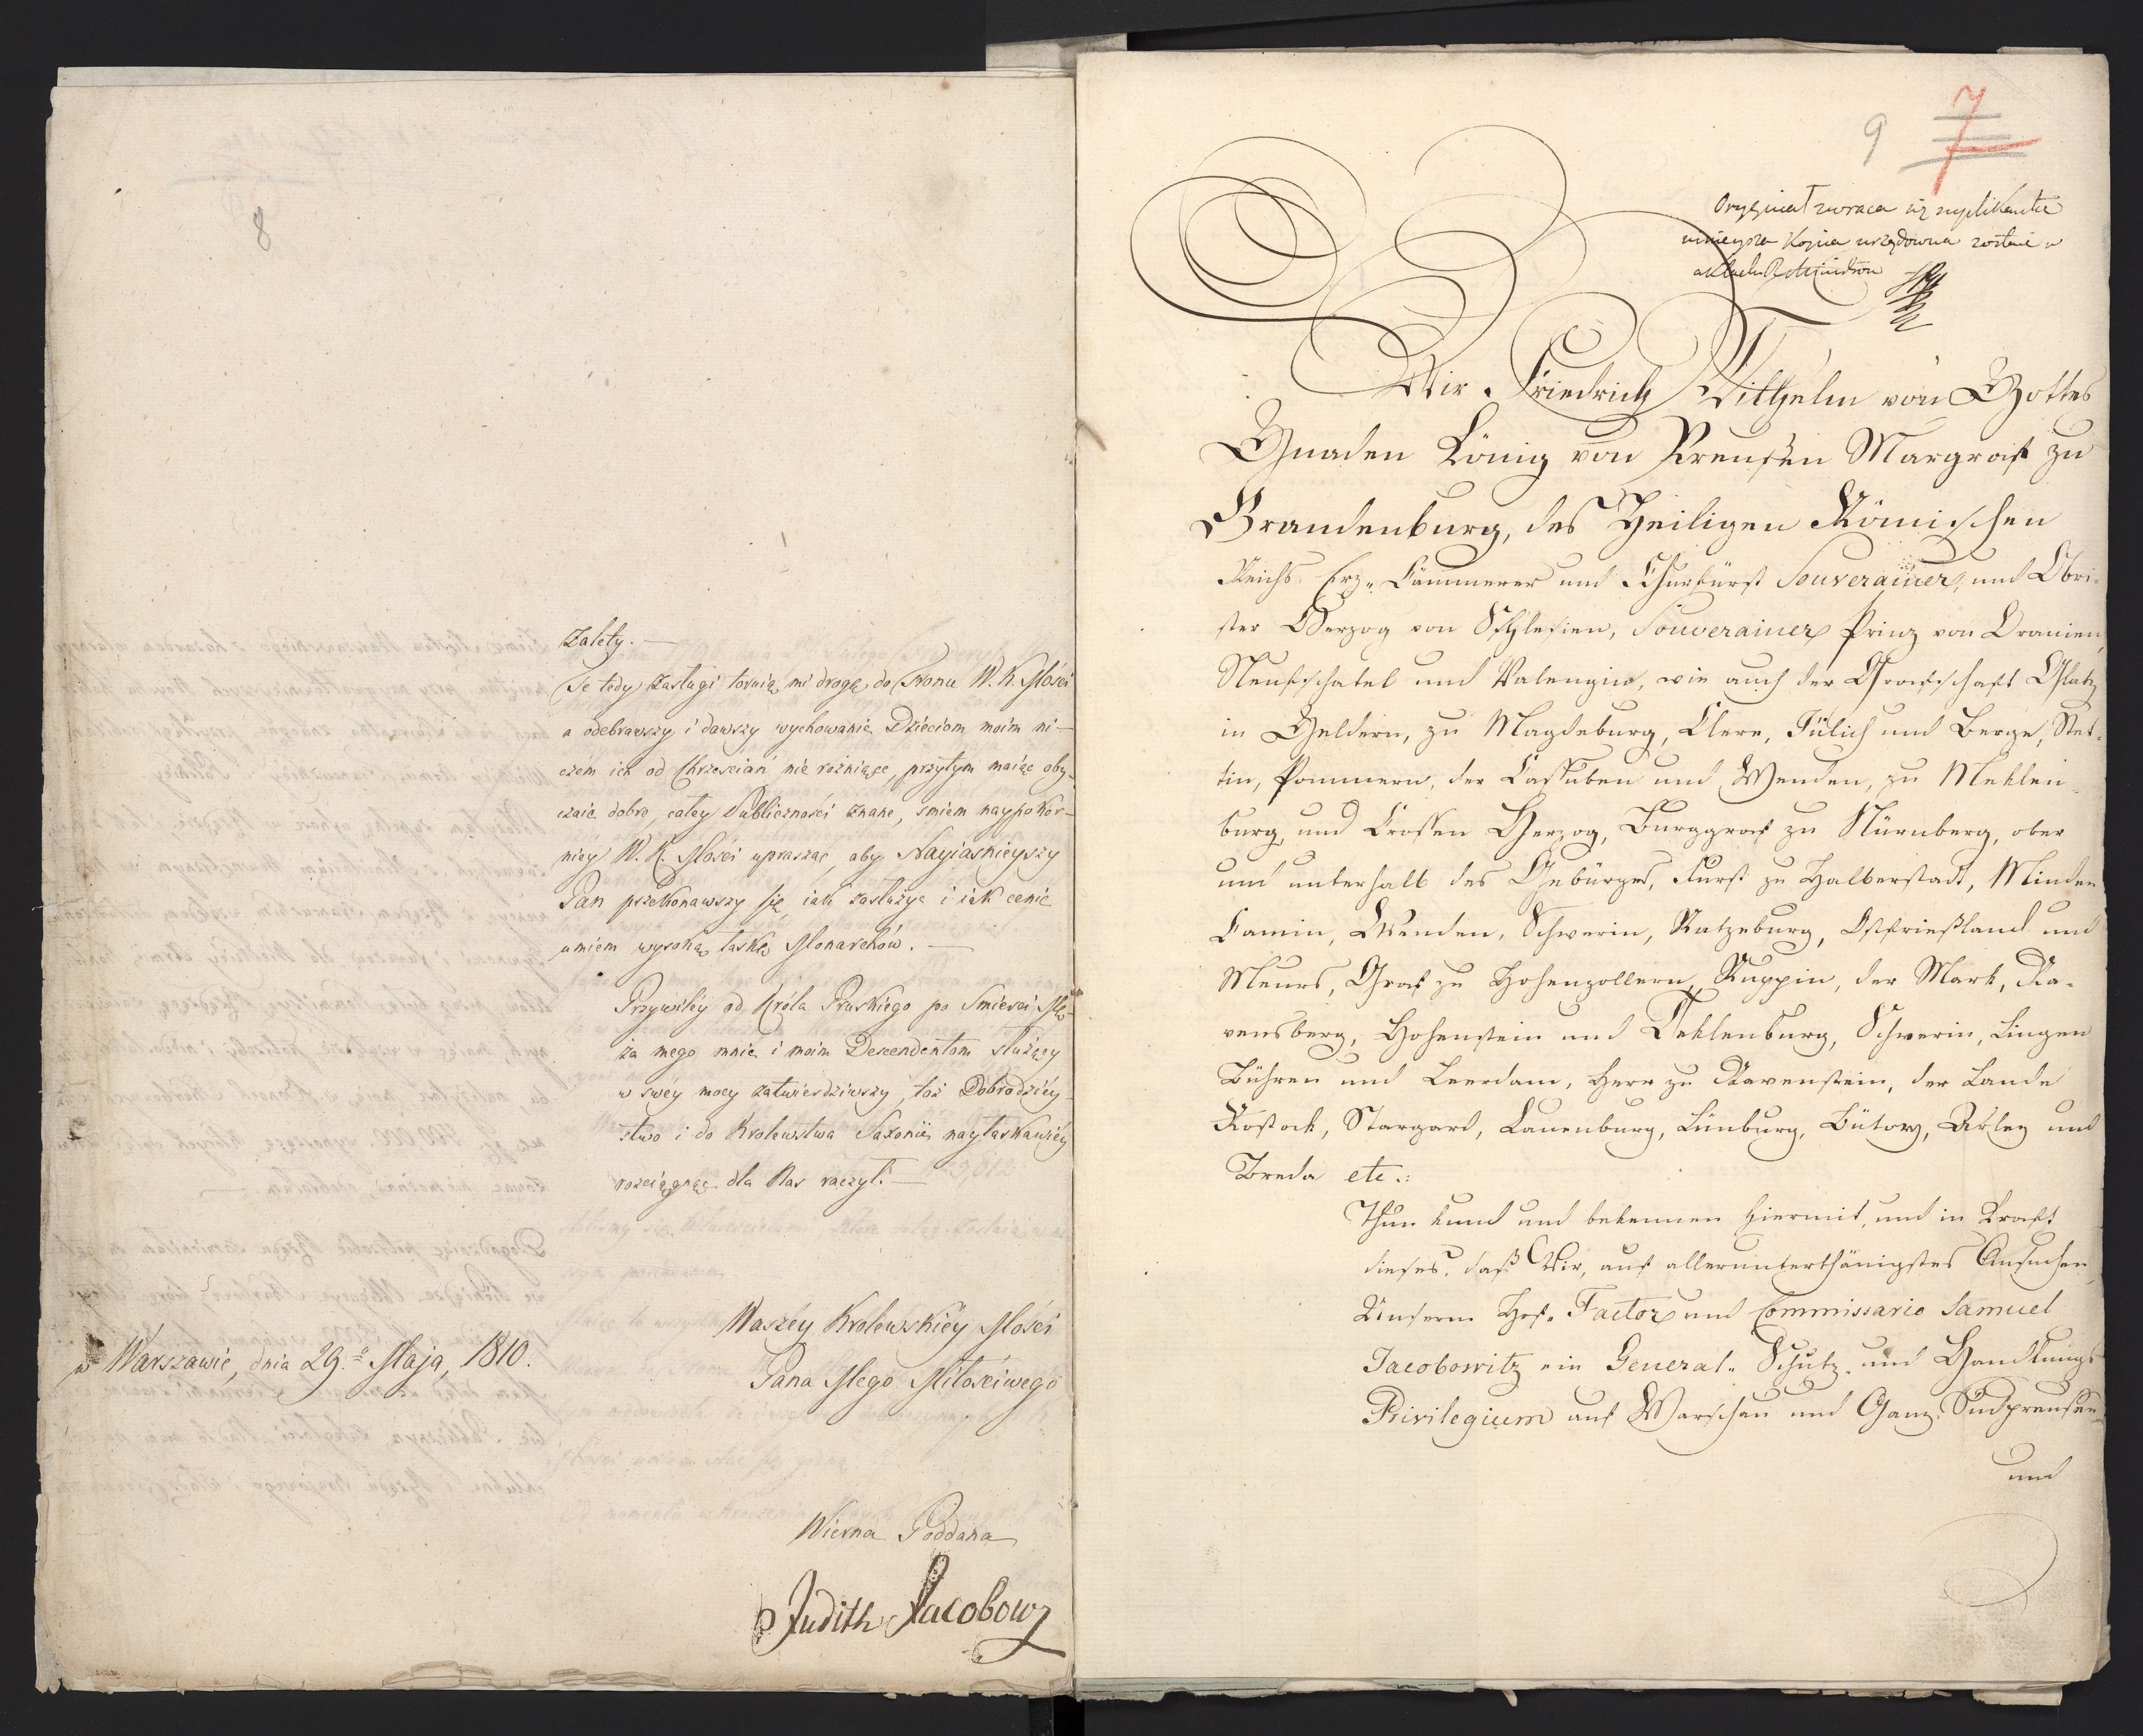 8
Zalety. —
Te tedy Zasługi torują mi drogę do Tronu W. K. Mości
a odebrawszy i dawszy wychowanie Dzieciom moim ni-
czem ich od Chrześcian nie rożniące, przytym maiąc oby-
czaie dobre, całey Publiczności znane, smiem naypokor-
niey W. K. Mości upraszać, aby Nayiaśnieyszy
Pan przekonawszy się iak zasłużyć i iak cenić
umiem wysoką łaskę Monarchów. —
Przywiléy od Króla Pruskiego po Smierci Mę-
ża mego mnie i moim Descendentom służący
w swéy mocy zatwierdziwszy, toż Dobrodziéy-
stwo i do Krolewstwa Saxonii nayłaskawiéy
rozciągnąć dla Nas raczył. —
Waszéy Krolewskiéy Mości
Pana Mego Miłościwego
w Warszawie, dnia 29. Maja, 1810.
Wierna Poddana
Judith Jacobowz
9 7
Oryginał zwraca się suplikantce
ninieysza Kopia urzędowna zostanie w
aktach
Wir Friedrich Wilhelm von Gottes
Gnaden König von Preußen Margraf zu
Brandenburg, des Heiligen Römischen
Reichs Erz-Cämmerer und Churfürst Souverainer, und Obri-
ster Herzog von Schlesien, Souverainer Prinz von Oranien,
Neufschatel und Valengin, wie auch der Grafschaft Glatz
in Geldern, zu Magdeburg, Cleve, Jülich und Berge, Stet-
tin, Pommern, der Cassuben und Wenden, zu Meklen-
burg und Crossen Herzog, Burggraf zu Nürnberg, ober
und unterhalb des Gebürges, Fürst zu Halberstadt, Minden
Camin, Wenden, Schwerin, Ratzeburg, Ostfrießland und
Meurs, Graf zu Hohenzollern, Ruppin, der Mark, Ra-
vensberg, Hohenstein und Teklenburg, Schwerin, Lingen
Bühren und Leerdam, Herr zu Ravenstein, der Lande
Rostock, Stargard, Lauenburg, Limburg, Bütow, Arley und
Breda etc.:
Thun kund und bekennen hiermit, und in Kraft
dieses, daß Wir, auf allerunterthänigstes Ansuchen,
Unserm Hof-Factor und Commissario Samuel
Jacobowitz ein General-Schutz- und Handlungs-
Privilegium auf Warschau und Ganz Südpreußen
und